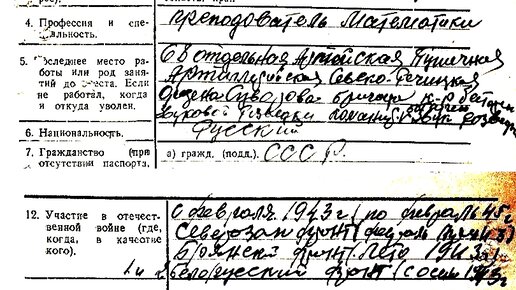 4. Профессия и спе-
циальность.
преподователь математики
5. Последнее место ра-
боты или род заня-
тий до ареста. Если
не работал, когда
и откуда уволен.
68 отдельная Армейская Пушечная
Артиллерийская Севско-Речицкая
Ордена Суворова бригада, к-р батареи
звуковой разведки
6. Национальность.
Русский
7. Гражданство (при
отсутствии паспорта,
а) гражд. (подд.). СССР.
12. Участие в отечест-
венной войне (где,
когда, в качестве
кого).
С февраля 1943 г. по февраль 45 г
Северозап фронт (февраль
Брянский фронт (лето 1943 г)
1 и 2 Белорусский фронт (с осени 1943 г